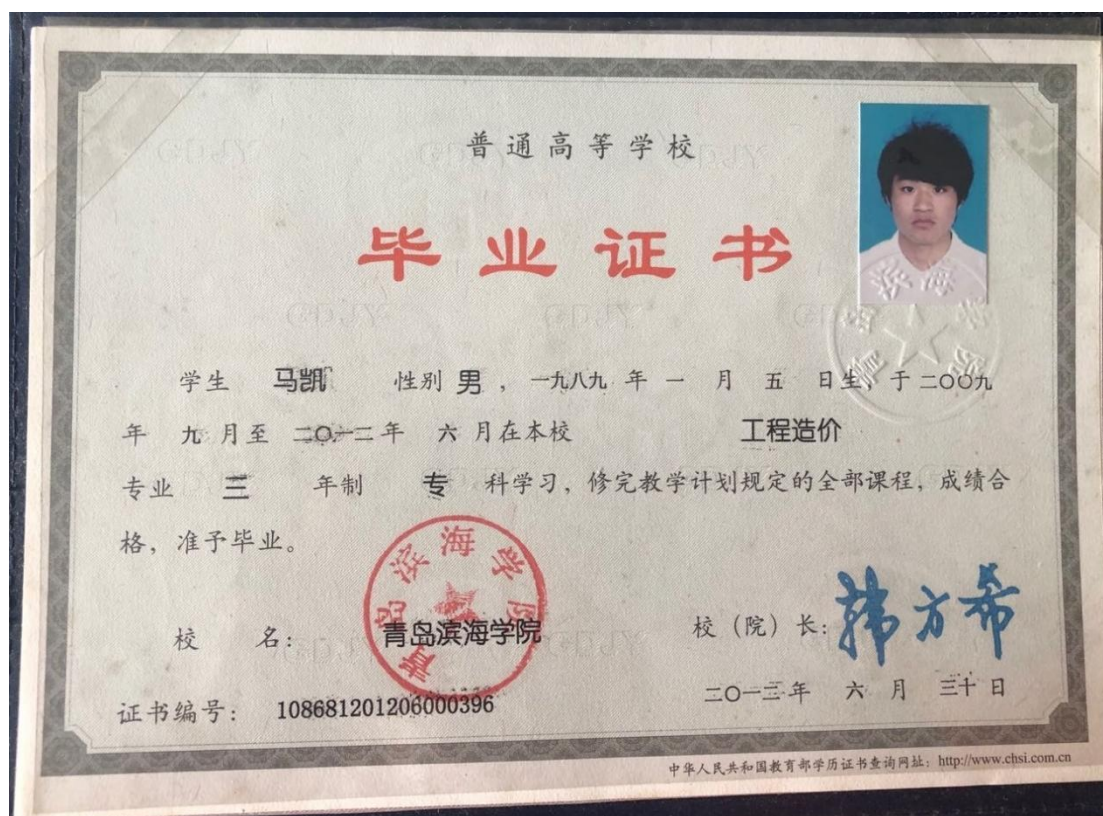 普通高等学校
毕业证书
学生 马凯 性别 男 , 一九八九 年 一 月 五 日生, 于 二〇〇九
年 九 月至 二〇一二年 六 月在本校 工程造价
专业 三 年制 专 科学习, 修完教学计划规定的全部课程, 成绩合
格, 准予毕业。
青岛滨海学院
校 名: 青岛滨海学院
校(院)长: 韩方希
证书编号: 108681201206000396
二〇一二年 六 月 三十 日
中华人民共和国教育部学历证书查询网址: http://www.chsi.com.cn